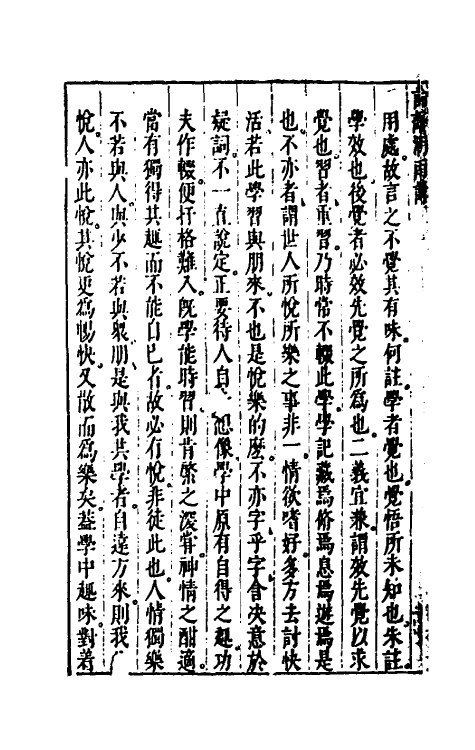 用處故言之不覺其有味何註學者覺也覺悟所未知也朱註
學效也後覺者必效先覺之所為也二義宜兼謂效先覺以求
覺也習者重習乃時常不輟此學學記藏焉脩焉息焉遊焉是
也不亦者謂世人所悅所樂之事非一情欲嗜好多方去討快
活若此學習與朋來不也是悅樂的麽不亦字乎字會決意於
疑詞不一直說定正要待人自想像學中原有自得之趣功
夫作輟便扞格難入旣學能時習則肯綮之深嘗神情之酣適
當有獨得其趣而不能自已者故必有悅非徒此也人情獨樂
不若與人與少不若與衆朋是與我共學者自遠方來則我
悅人亦此悅其悅更為暢快又散而為樂矣葢學中趣味對着